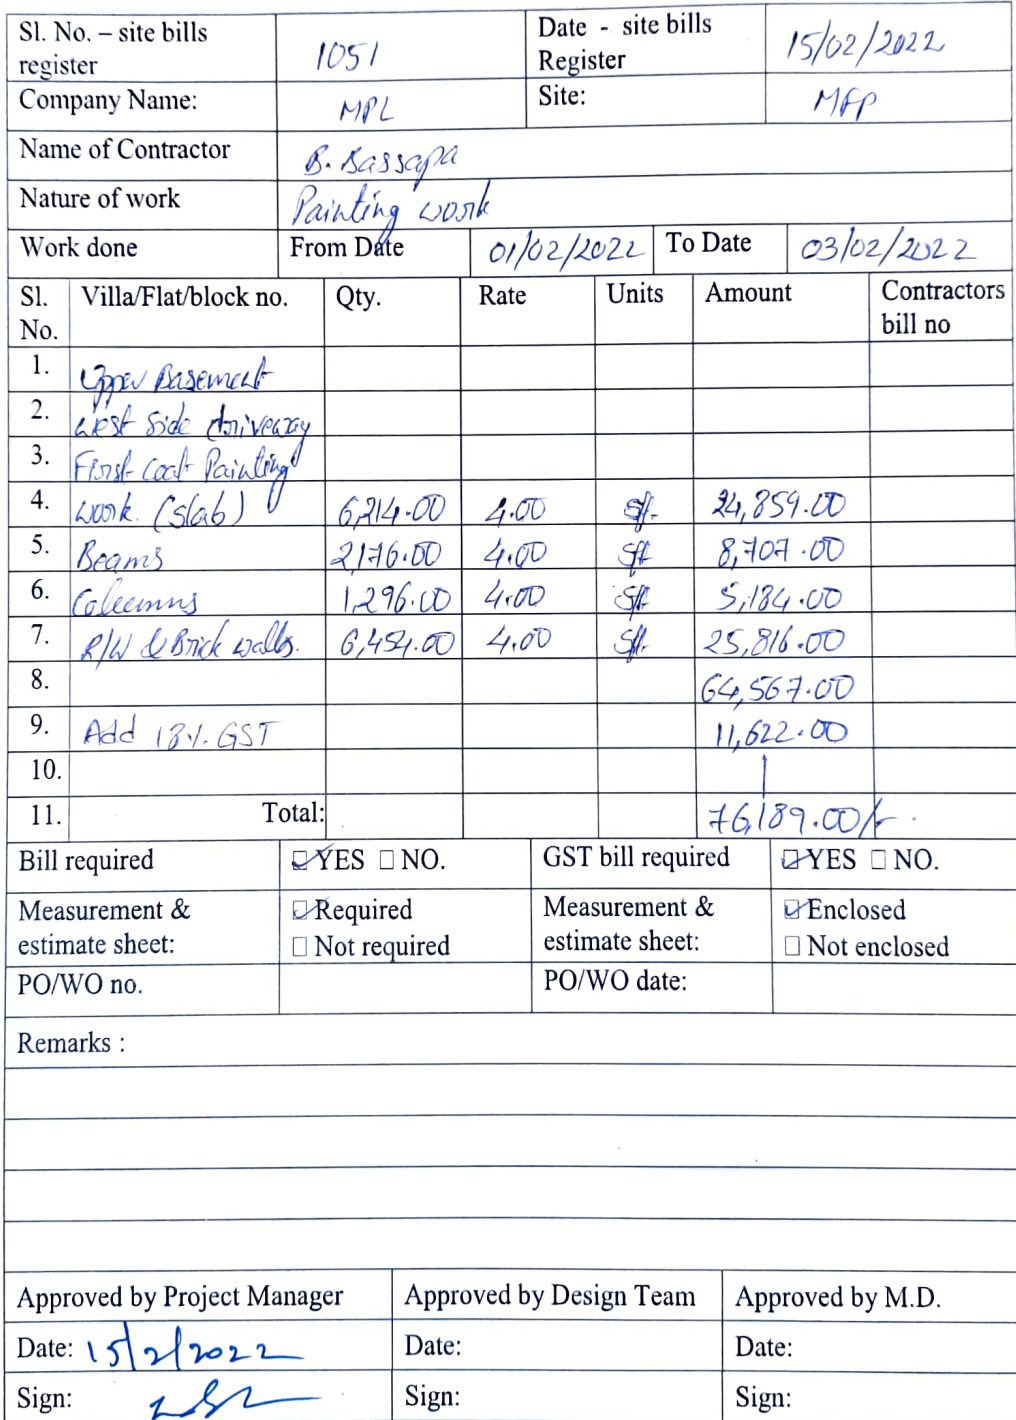 Sl. No. – site bills register 1051 Date - site bills Register 15/02/2022
Company Name: MPL Site: MFP
Name of Contractor B. Bassapa
Nature of work Painting work
Work done From Date 01/02/2022 To Date 03/02/2022
Sl. No. Villa/Flat/block no. Qty. Rate Units Amount Contractors bill no
1. Upper Basement
2. West Side driveway
3. First Coat Painting
4. work. (Slab) 6,214.00 4.00 Sft. 24,859.00
5. Beams 2,176.00 4.00 Sft 8,707.00
6. Coleemns 1,296.00 4.00 Sft 5,184.00
7. R/W & Brick walls. 6,454.00 4.00 Sft. 25,816.00
8. 64,567.00
9. Add 18%. GST 11,622.00
10.
11. Total: 76,189.00/-
Bill required ☑ YES ☐ NO. GST bill required ☑ YES ☐ NO.
Measurement & estimate sheet: ☑ Required ☐ Not required Measurement & estimate sheet: ☑ Enclosed ☐ Not enclosed
PO/WO no. PO/WO date:
Remarks :
Approved by Project Manager Approved by Design Team Approved by M.D.
Date: 15/2/2022 Date: Date:
Sign: Sign: Sign: